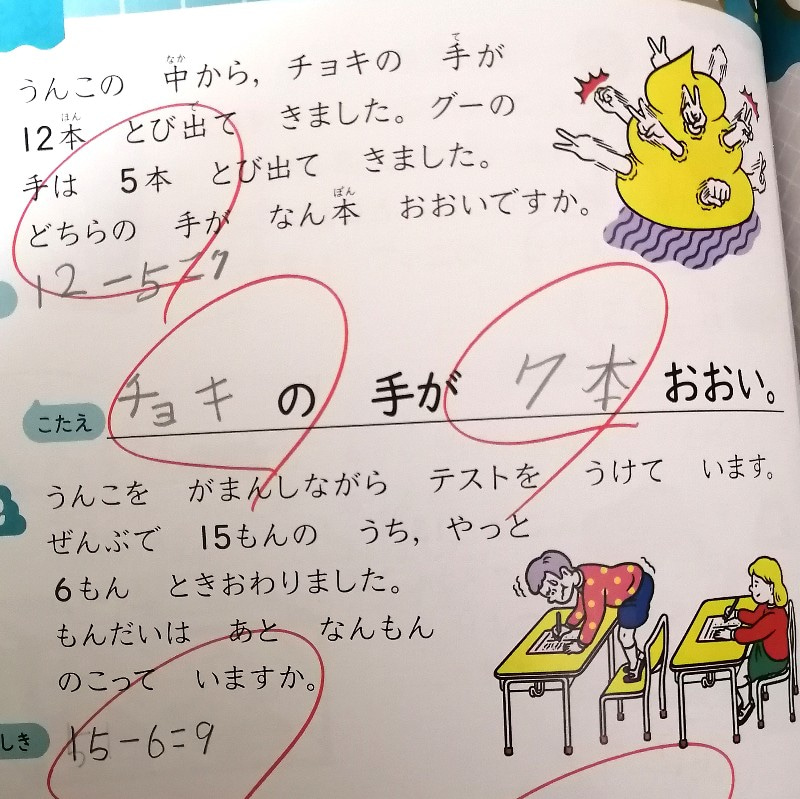 うんこの 中から, チョキの 手が
12本 とび出て きました。グーの
手は 5本 とび出て きました。
どちらの 手が なん本 おおいですか。
12-5=7
こたえ チョキの 手が 7本 おおい。
うんこを がまんしながら テストを うけて います。
ぜんぶで 15もんの うち, やっと
6もん ときおわりました。
もんだいは あと なんもん
のこって いますか。
しき 15-6=9